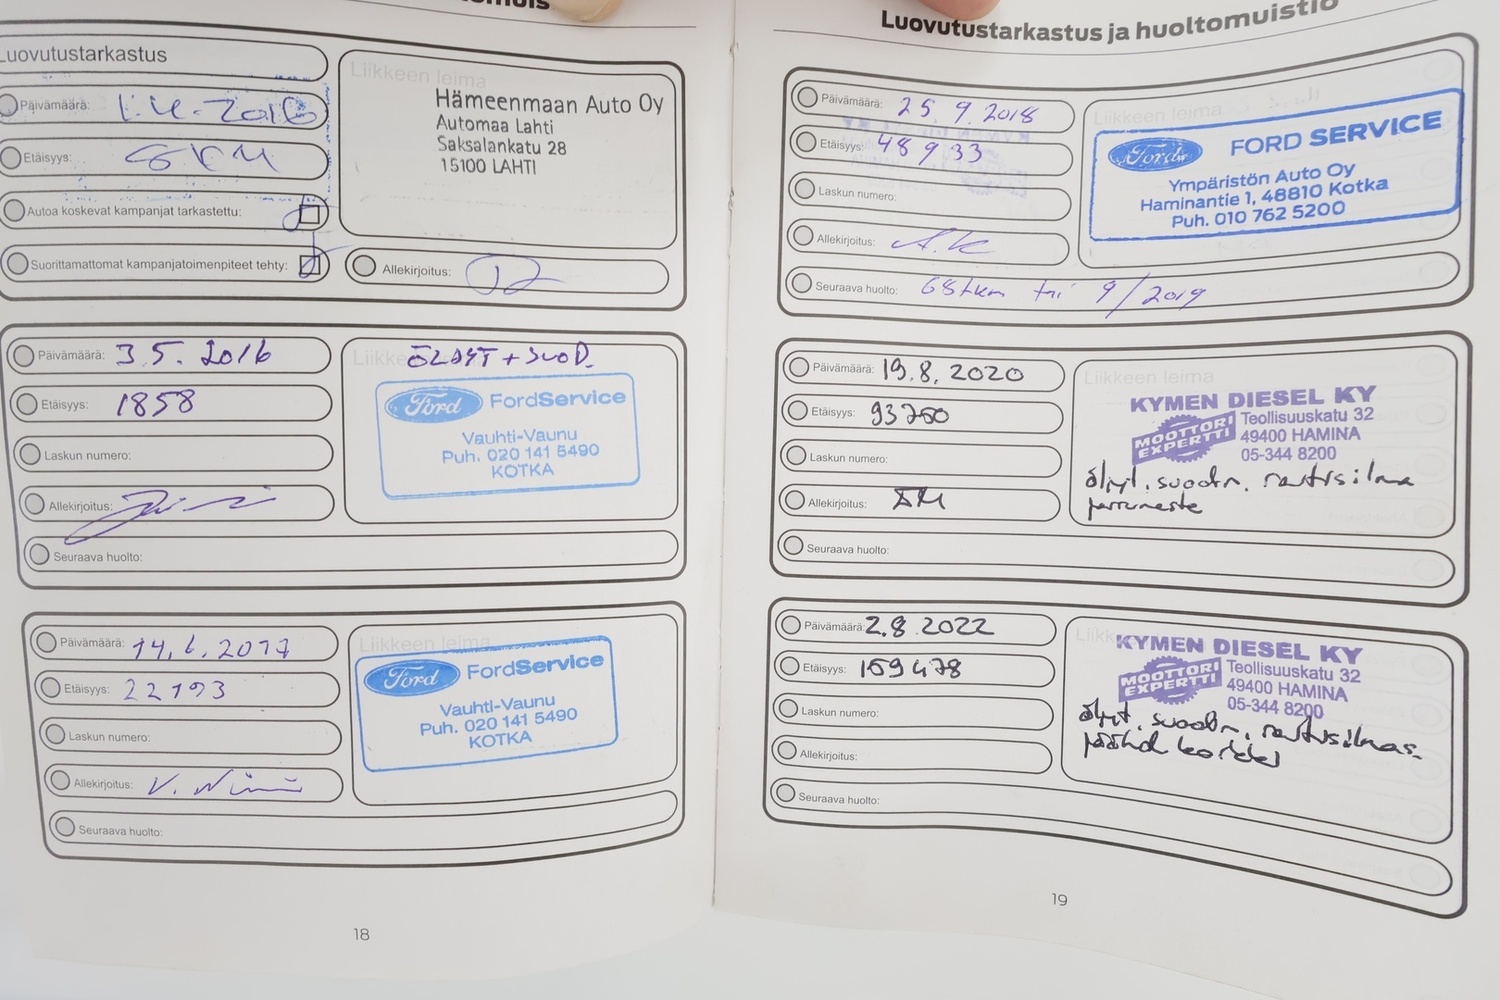 Luovutustarkastus
Päivämäärä: 1.4.2016
Etäisyys: 6KM
Autoa koskevat kampanjat tarkastettu:
Suorittamattomat kampanjatoimenpiteet tehty:
Liikkeen leima
Hämeenmaan Auto Oy
Automaa Lahti
Saksalankatu 28
15100 LAHTI
Allekirjoitus:
Päivämäärä: 3.5.2016
Etäisyys: 1858
Laskun numero:
Allekirjoitus:
Seuraava huolto:
ÖLJYT + SUOD.
Ford FordService
Vauhti-Vaunu
Puh. 020 141 5490
KOTKA
Päivämäärä: 14.6.2017
Etäisyys: 22193
Laskun numero:
Allekirjoitus:
Seuraava huolto:
Liikkeen leima
Ford FordService
Vauhti-Vaunu
Puh. 020 141 5490
KOTKA
18
Luovutustarkastus ja huoltomuistio
Päivämäärä: 25.9.2018
Etäisyys: 48933
Laskun numero:
Allekirjoitus: A.K
Seuraava huolto: 68tkm tai 9/2019
Liikkeen leima
Ford FORD SERVICE
Ympäristön Auto Oy
Haminantie 1, 48810 Kotka
Puh. 010 762 5200
Päivämäärä: 19.8.2020
Etäisyys: 93760
Laskun numero:
Allekirjoitus:
Seuraava huolto:
Liikkeen leima
KYMEN DIESEL KY
MOOTTORI EXPERTTI
Teollisuuskatu 32
49400 HAMINA
05-344 8200
öljyt, suodn, raitisilma
jarruneste
Päivämäärä: 2.8.2022
Etäisyys: 159478
Laskun numero:
Allekirjoitus:
Seuraava huolto:
KYMEN DIESEL KY
MOOTTORI EXPERTTI
Teollisuuskatu 32
49400 HAMINA
05-344 8200
öljyt, suodn, raitisilmas.
19